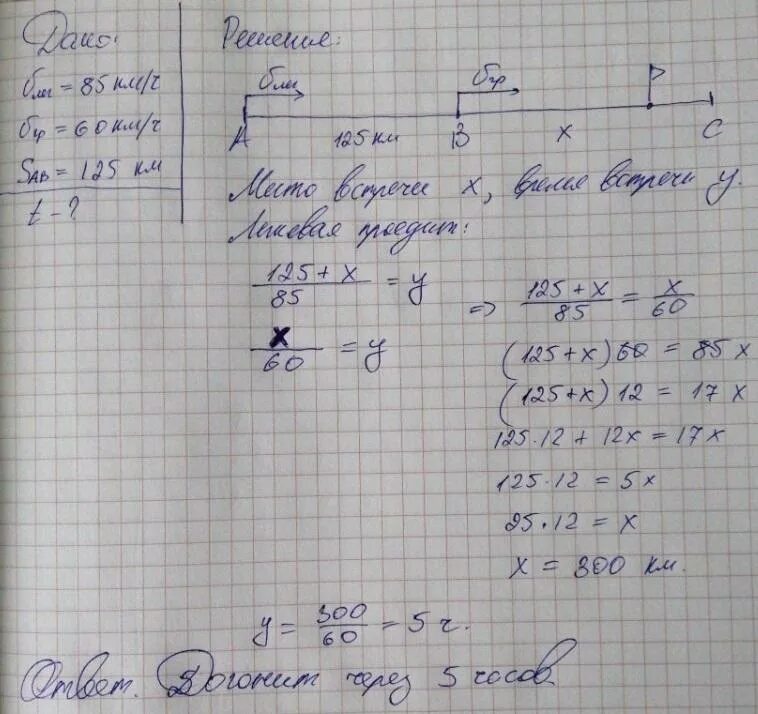 Дано:
υлег = 85 км/ч
υгр = 60 км/ч
SAB = 125 км
t - ?
Решение:
υлег υгр
A 125 км B x C
Место встречи x, время встречи y.
Легковая проедит:
125 + x / 85 = y
x / 60 = y
=> 125 + x / 85 = x / 60
(125+x) 60 = 85 x
(125+x) 12 = 17 x
125·12 + 12x = 17x
125·12 = 5x
25·12 = x
x = 300 км.
y = 300 / 60 = 5 ч.
Ответ. Догонит через 5 часов.